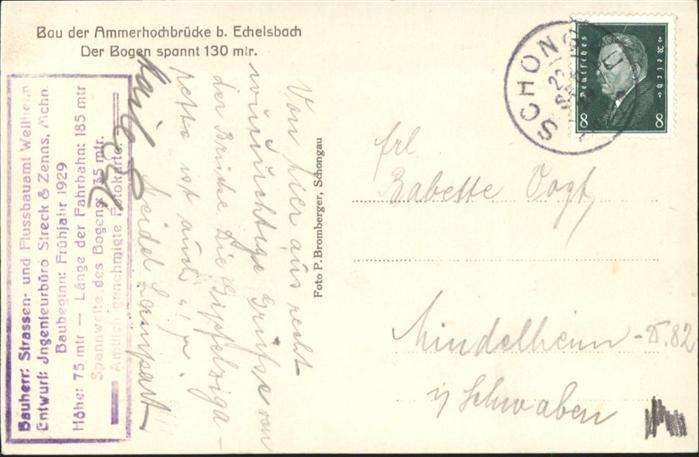 Bau der Ammerhochbrücke b. Echelsbach
Der Bogen spannt 130 mtr.
Bauherr: Strassen- und Flussbauamt Weilheim
Entwurf: Ingenieurbüro Streck & Zenns, Mchn.
Baubeginn: Frühjahr 1929
Höhe: 75 mtr — Länge der Fahrbahn: 185 mtr
Spannweite des Bogens: 35 mtr.
Amtlich genehmigte Fotokarte
Von hier aus recht
Grüsse von
der Brücke die
ist auch
Foto P. Bromberger, Schongau
SCHONG
Deutsches Reich
8 8
Frl
Babette Vogt
Mindelheim - 82
i/Schwaben